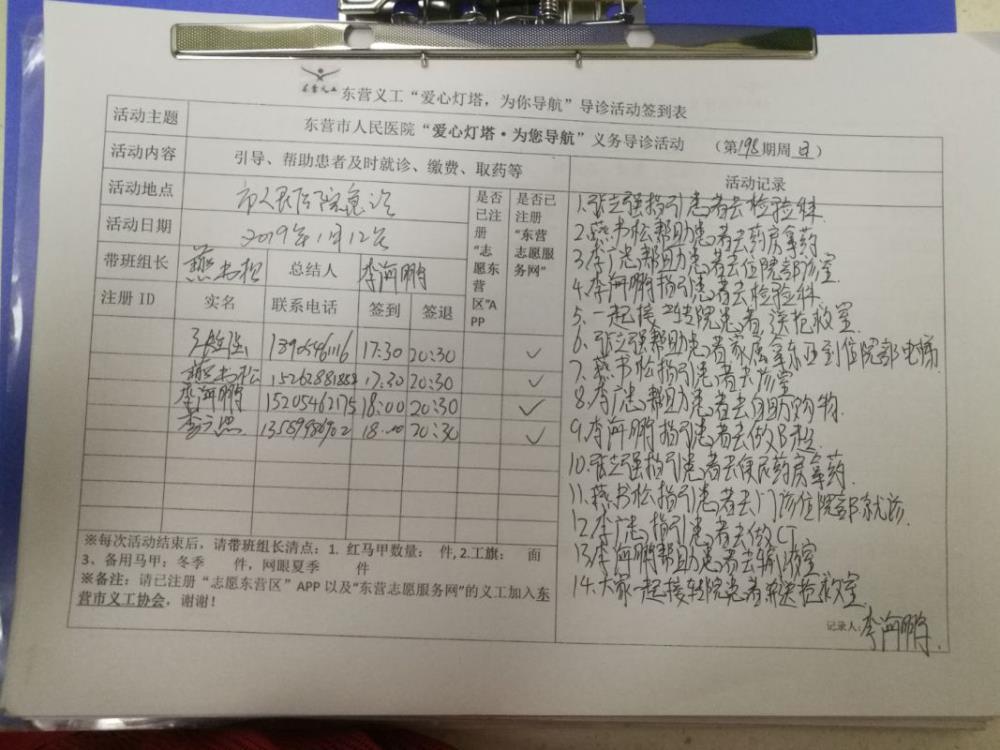 东营义工
东营义工“爱心灯塔，为你导航”导诊活动签到表
活动主题
东营市人民医院“爱心灯塔·为您导航”义务导诊活动 （第198期周日）
活动内容
引导、帮助患者及时就诊、缴费、取药等
活动记录
活动地点
市人民医院急诊
活动日期
2019年1月12日
带班组长 燕书松 总结人 李海鹏
是否已注册“志愿东营区”APP
是否已注册“东营志愿服务网”
注册 ID 实名 联系电话 签到 签退
张立强 1390546116 17:30 20:30 ✓
燕书松 17:30 20:30 ✓
李海鹏 15205462175 18:00 20:30 ✓
李广忠 18:00 20:30 ✓
※每次活动结束后，请带班组长清点：1. 红马甲数量： 件,2.工旗： 面
3、备用马甲：冬季 件，网眼夏季 件
※备注：请已注册“志愿东营区”APP 以及“东营志愿服务网”的义工加入东
营市义工协会，谢谢！
1.张立强指引患者去检验科.
2.燕书松帮助患者去药房拿药
3.李广忠帮助患者去住院部诊室
4.李海鹏指引患者去检验科
5.一起接转院患者,送抢救室.
6.张立强帮助患者家属拿东西到住院部电梯
7.燕书松指引患者去诊室
8.李广忠帮助患者去自助购物.
9.李海鹏指引患者去做B超.
10.张立强指引患者去便民药房拿药
11.燕书松指引患者去门诊住院部就诊.
12.李广忠指引患者去做CT
13.李海鹏帮助患者去输液室
14.大家一起接转院患者并送抢救室.
记录人：李海鹏.